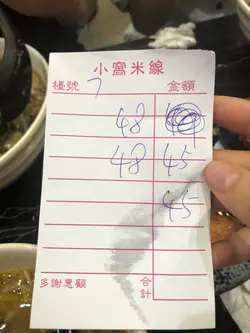 小窩米線
檯號 7 金額
48
48 45
45
多謝惠顧 合計